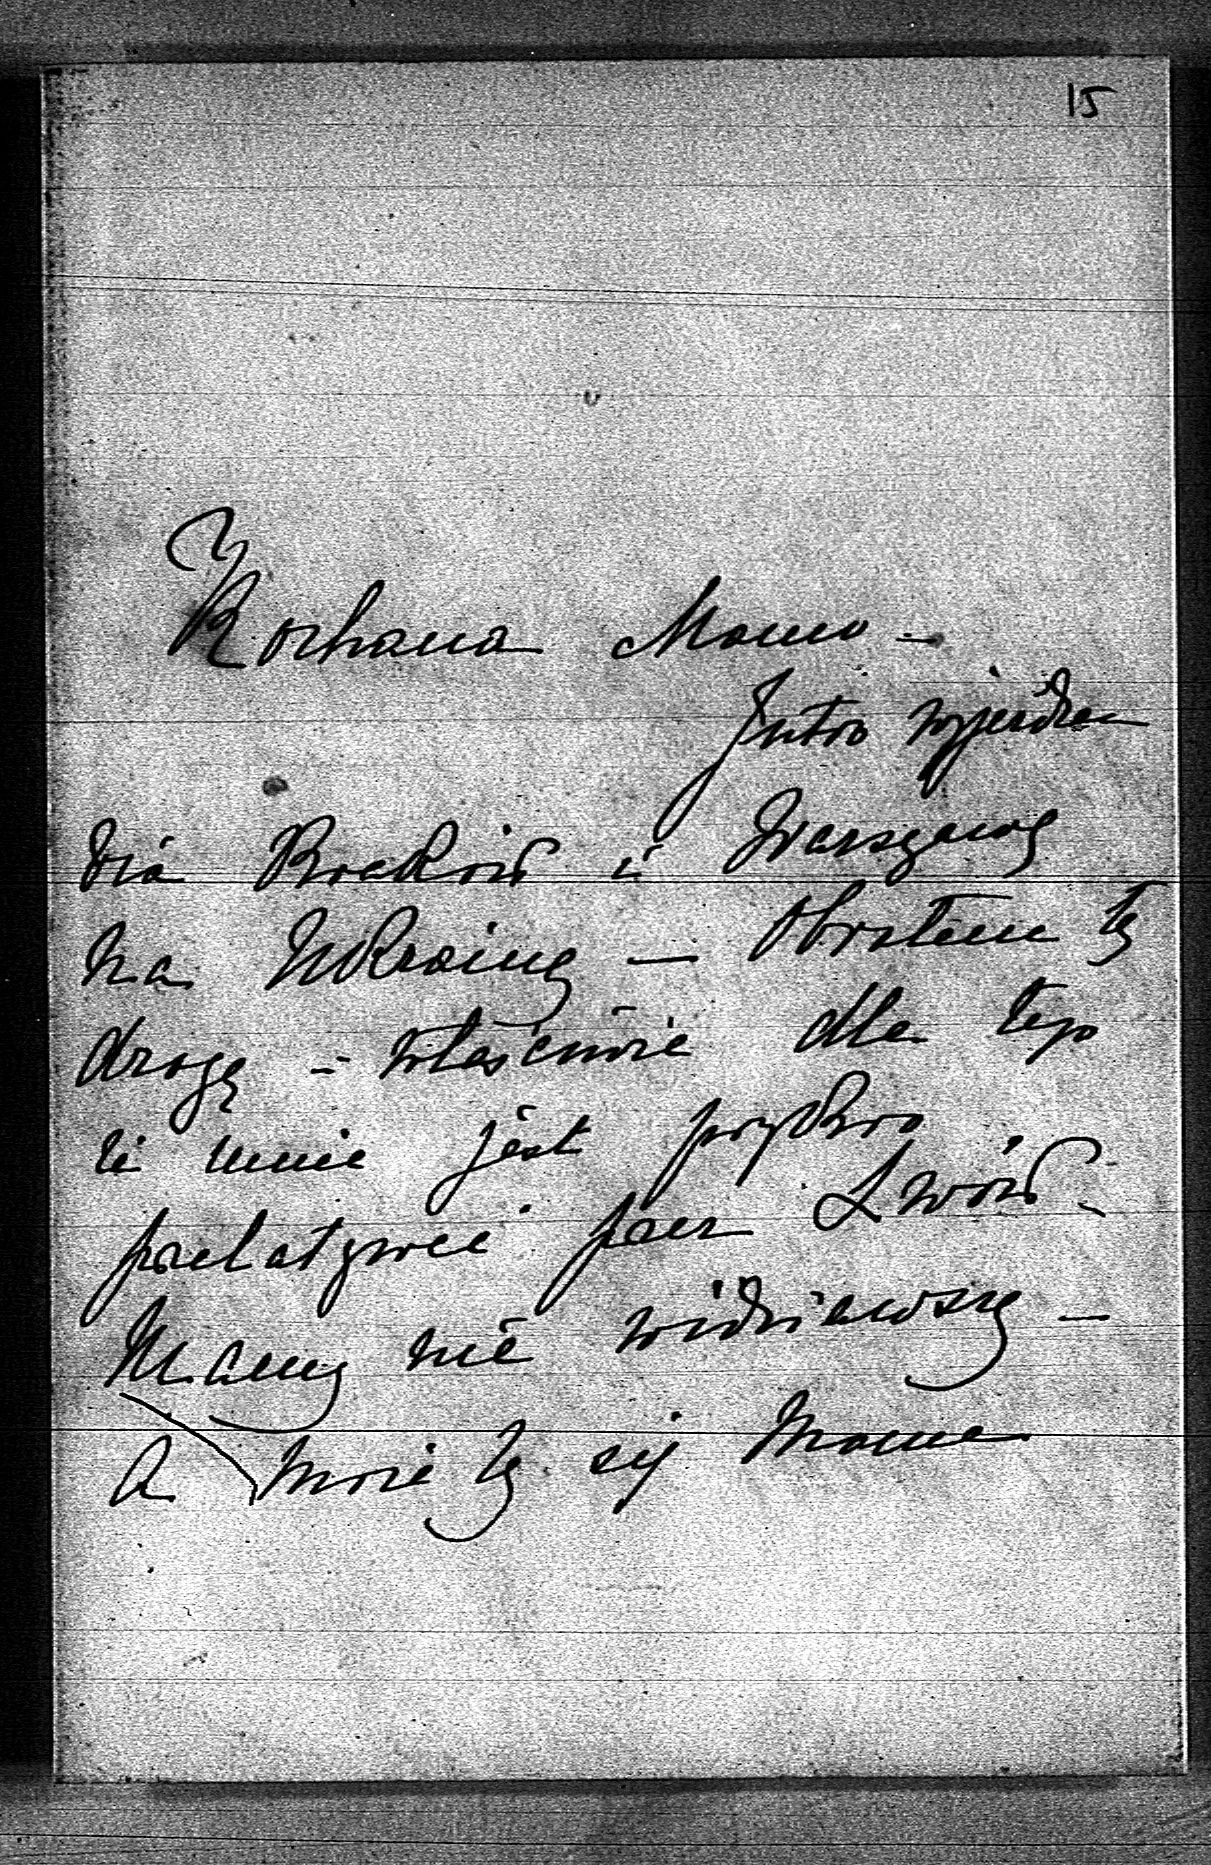 15
Kochana Mamo –
Jutro wyjeżdżam
via Kraków i Warszawę
na Ukrainę – Obrałem tę
drogę – właściwie dla tego
że mnie jest przykro
przelatywać przez Lwów –
Mamy nie widziawszy –
A może by się Mama